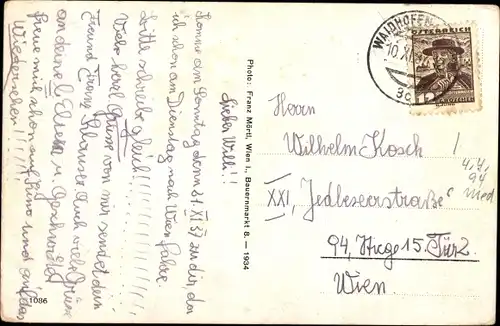 Lieber Willi!!
Komme am Sonntag den 21. XI. 37 zu dir, da
ich schon am Dienstag nach Wien fahre.
Bitte schreibe gleich!!!!!!!!!
Viele Grüsse von mir sendet dein
Freund Franz. Auch viele Grüsse
an deine l. Eltern u. Geschwister
freue mich schon auf Kino und auf das
Wiedersehen!!!
1086
Photo: Franz Mörtl, Wien I., Bauernmarkt 8. — 1934
WAIDHOFEN
10. XI.
ÖSTERREICH
Herrn
Wilhelm Kosch!
XXI, Jedleseerstraße
94, Stiege 15. Tür 2.
Wien.